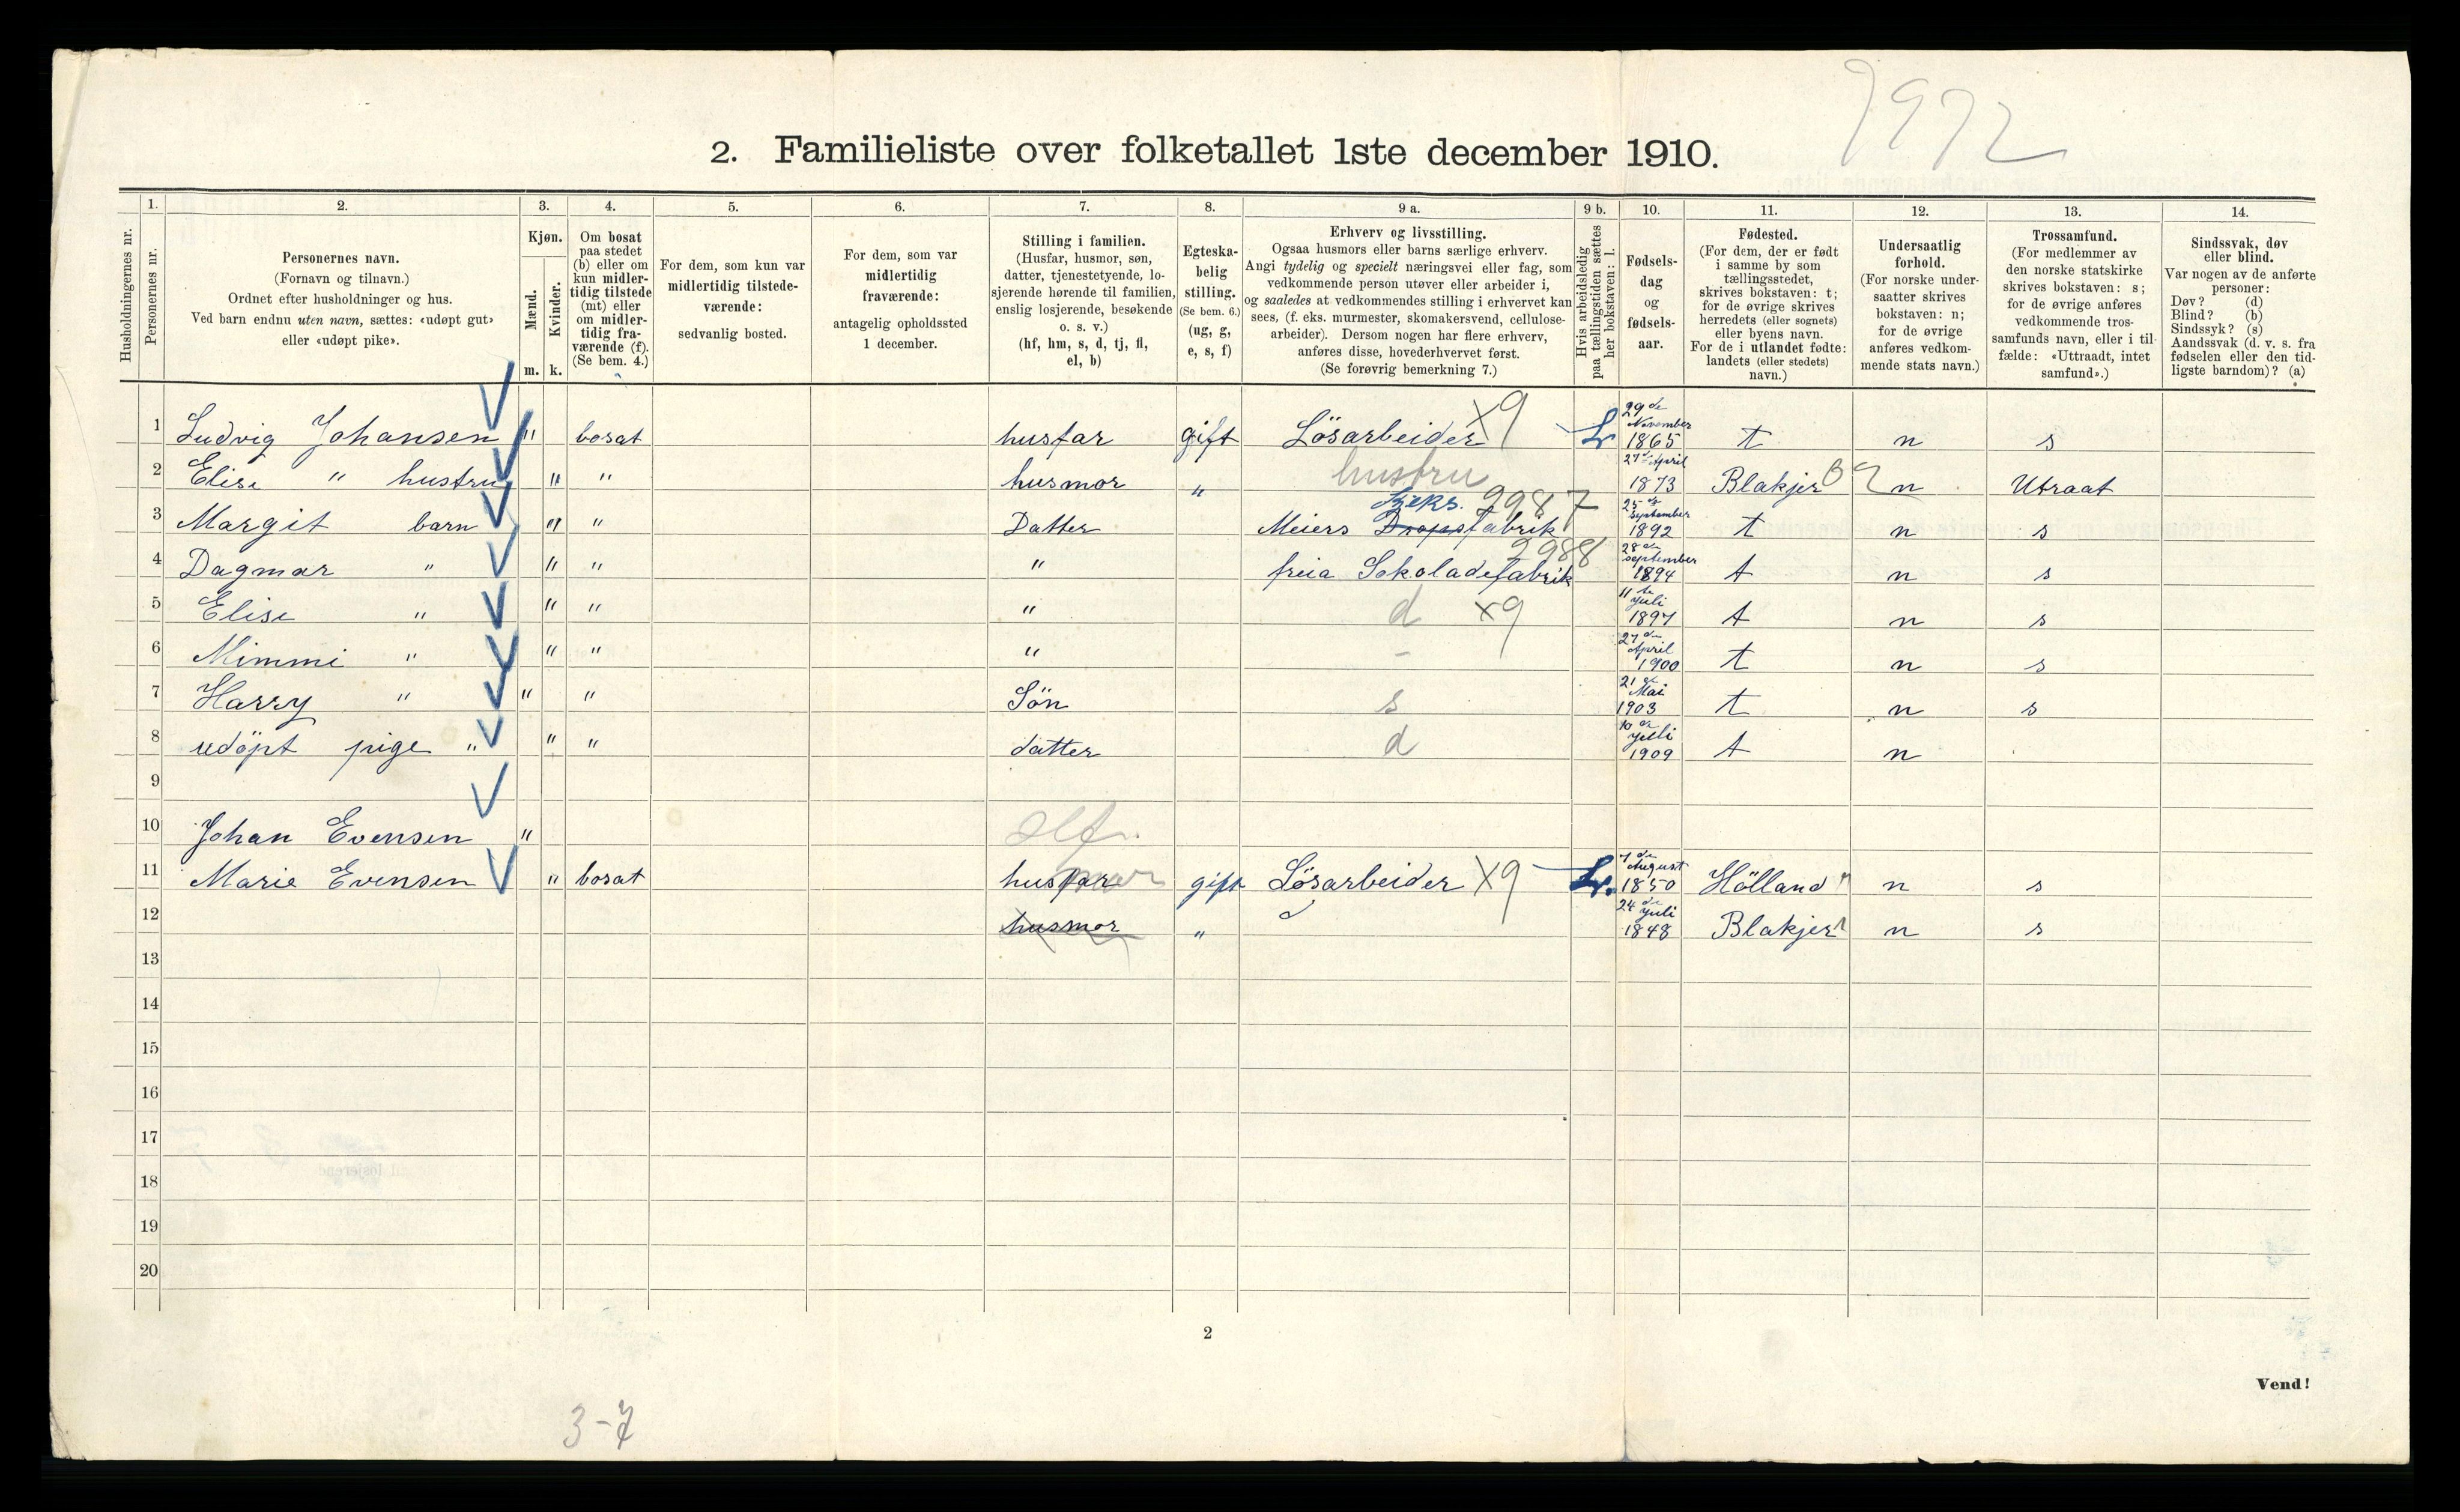 7972
2. Familieliste over folketallet 1ste december 1910.
Husholdningernes nr.
1. Personernes nr.
2. Personernes navn.
(Fornavn og tilnavn.)
Ordnet efter husholdninger og hus.
Ved barn endnu uten navn, sættes: «udøpt gut»
eller «udøpt pike».
3. Kjøn.
Mænd. m.
Kvinder. k.
4. Om bosat
paa stedet
(b) eller om
kun midler-
tidig tilstede
(mt) eller
om midler-
tidig fra-
værende (f).
(Se bem. 4.)
5. For dem, som kun var
midlertidig tilstede-
værende:
sedvanlig bosted.
6. For dem, som var
midlertidig
fraværende:
antagelig opholdssted
1 december.
7. Stilling i familien.
(Husfar, husmor, søn,
datter, tjenestetyende, lo-
sjerende hørende til familien,
enslig losjerende, besøkende
o. s. v.)
(hf, hm, s, d, tj, fl,
el, b)
8. Egteska-
belig
stilling.
(Se bem. 6.)
(ug, g,
e, s, f)
9 a. Erhverv og livsstilling.
Ogsaa husmors eller barns særlige erhverv.
Angi tydelig og specielt næringsvei eller fag, som
vedkommende person utøver eller arbeider i,
og saaledes at vedkommendes stilling i erhvervet kan
sees, (f. eks. murmester, skomakersvend, cellulose-
arbeider). Dersom nogen har flere erhverv,
anføres disse, hovederhvervet først.
(Se forøvrig bemerkning 7.)
9 b. Hvis arbeidsledig
paa tællingstiden sættes
her bokstaven: l.
10. Fødsels-
dag
og
fødsels-
aar.
11. Fødested.
(For dem, der er født
i samme by som
tællingsstedet,
skrives bokstaven: t;
for de øvrige skrives
herredets (eller sognets)
eller byens navn.
For de i utlandet fødte:
landets (eller stedets)
navn.)
12. Undersaatlig
forhold.
(For norske under-
saatter skrives
bokstaven: n;
for de øvrige
anføres vedkom-
mende stats navn.)
13. Trossamfund.
(For medlemmer av
den norske statskirke
skrives bokstaven: s;
for de øvrige anføres
vedkommende tros-
samfunds navn, eller i til-
fælde: «Uttraadt, intet
samfund».)
14. Sindssvak, døv
eller blind.
Var nogen av de anførte
personer:
Døv? (d)
Blind? (b)
Sindssyk? (s)
Aandssvak (d. v. s. fra
fødselen eller den tid-
ligste barndom)? (a)
1 Ludvig Johansen " bosat husfar gift Lösarbeider x9 L. 29de November 1865 t n s
2 Elise " hustru " " husmor " hustru 27de April 1873 Blakjer n Utraat
3 Margit barn " " Datter Meiers Dropsfabrik Kjeks. 2987 25de September 1892 t n s
4 Dagmar " " " " freia Sokoladefabrik 2988 28de September 1894 t n s
5 Elise " " " " d x9 11te Juli 1897 t n s
6 Mimmi " " " " - 27de April 1900 t n s
7 Harry " " " Sön s 21de Mai 1903 t n s
8 udöpt pige " " " datter d 10de Juli 1909 t n
9
10 Johan Evensen "
11 Marie Evensen " bosat husfar gift Lösarbeider x9 L. 7de August 1850 Hölland n s
12 husmor " 24de Juli 1848 Blakjer n s
13
14
15
16
17
18
19
20
2
Vend!
3-7